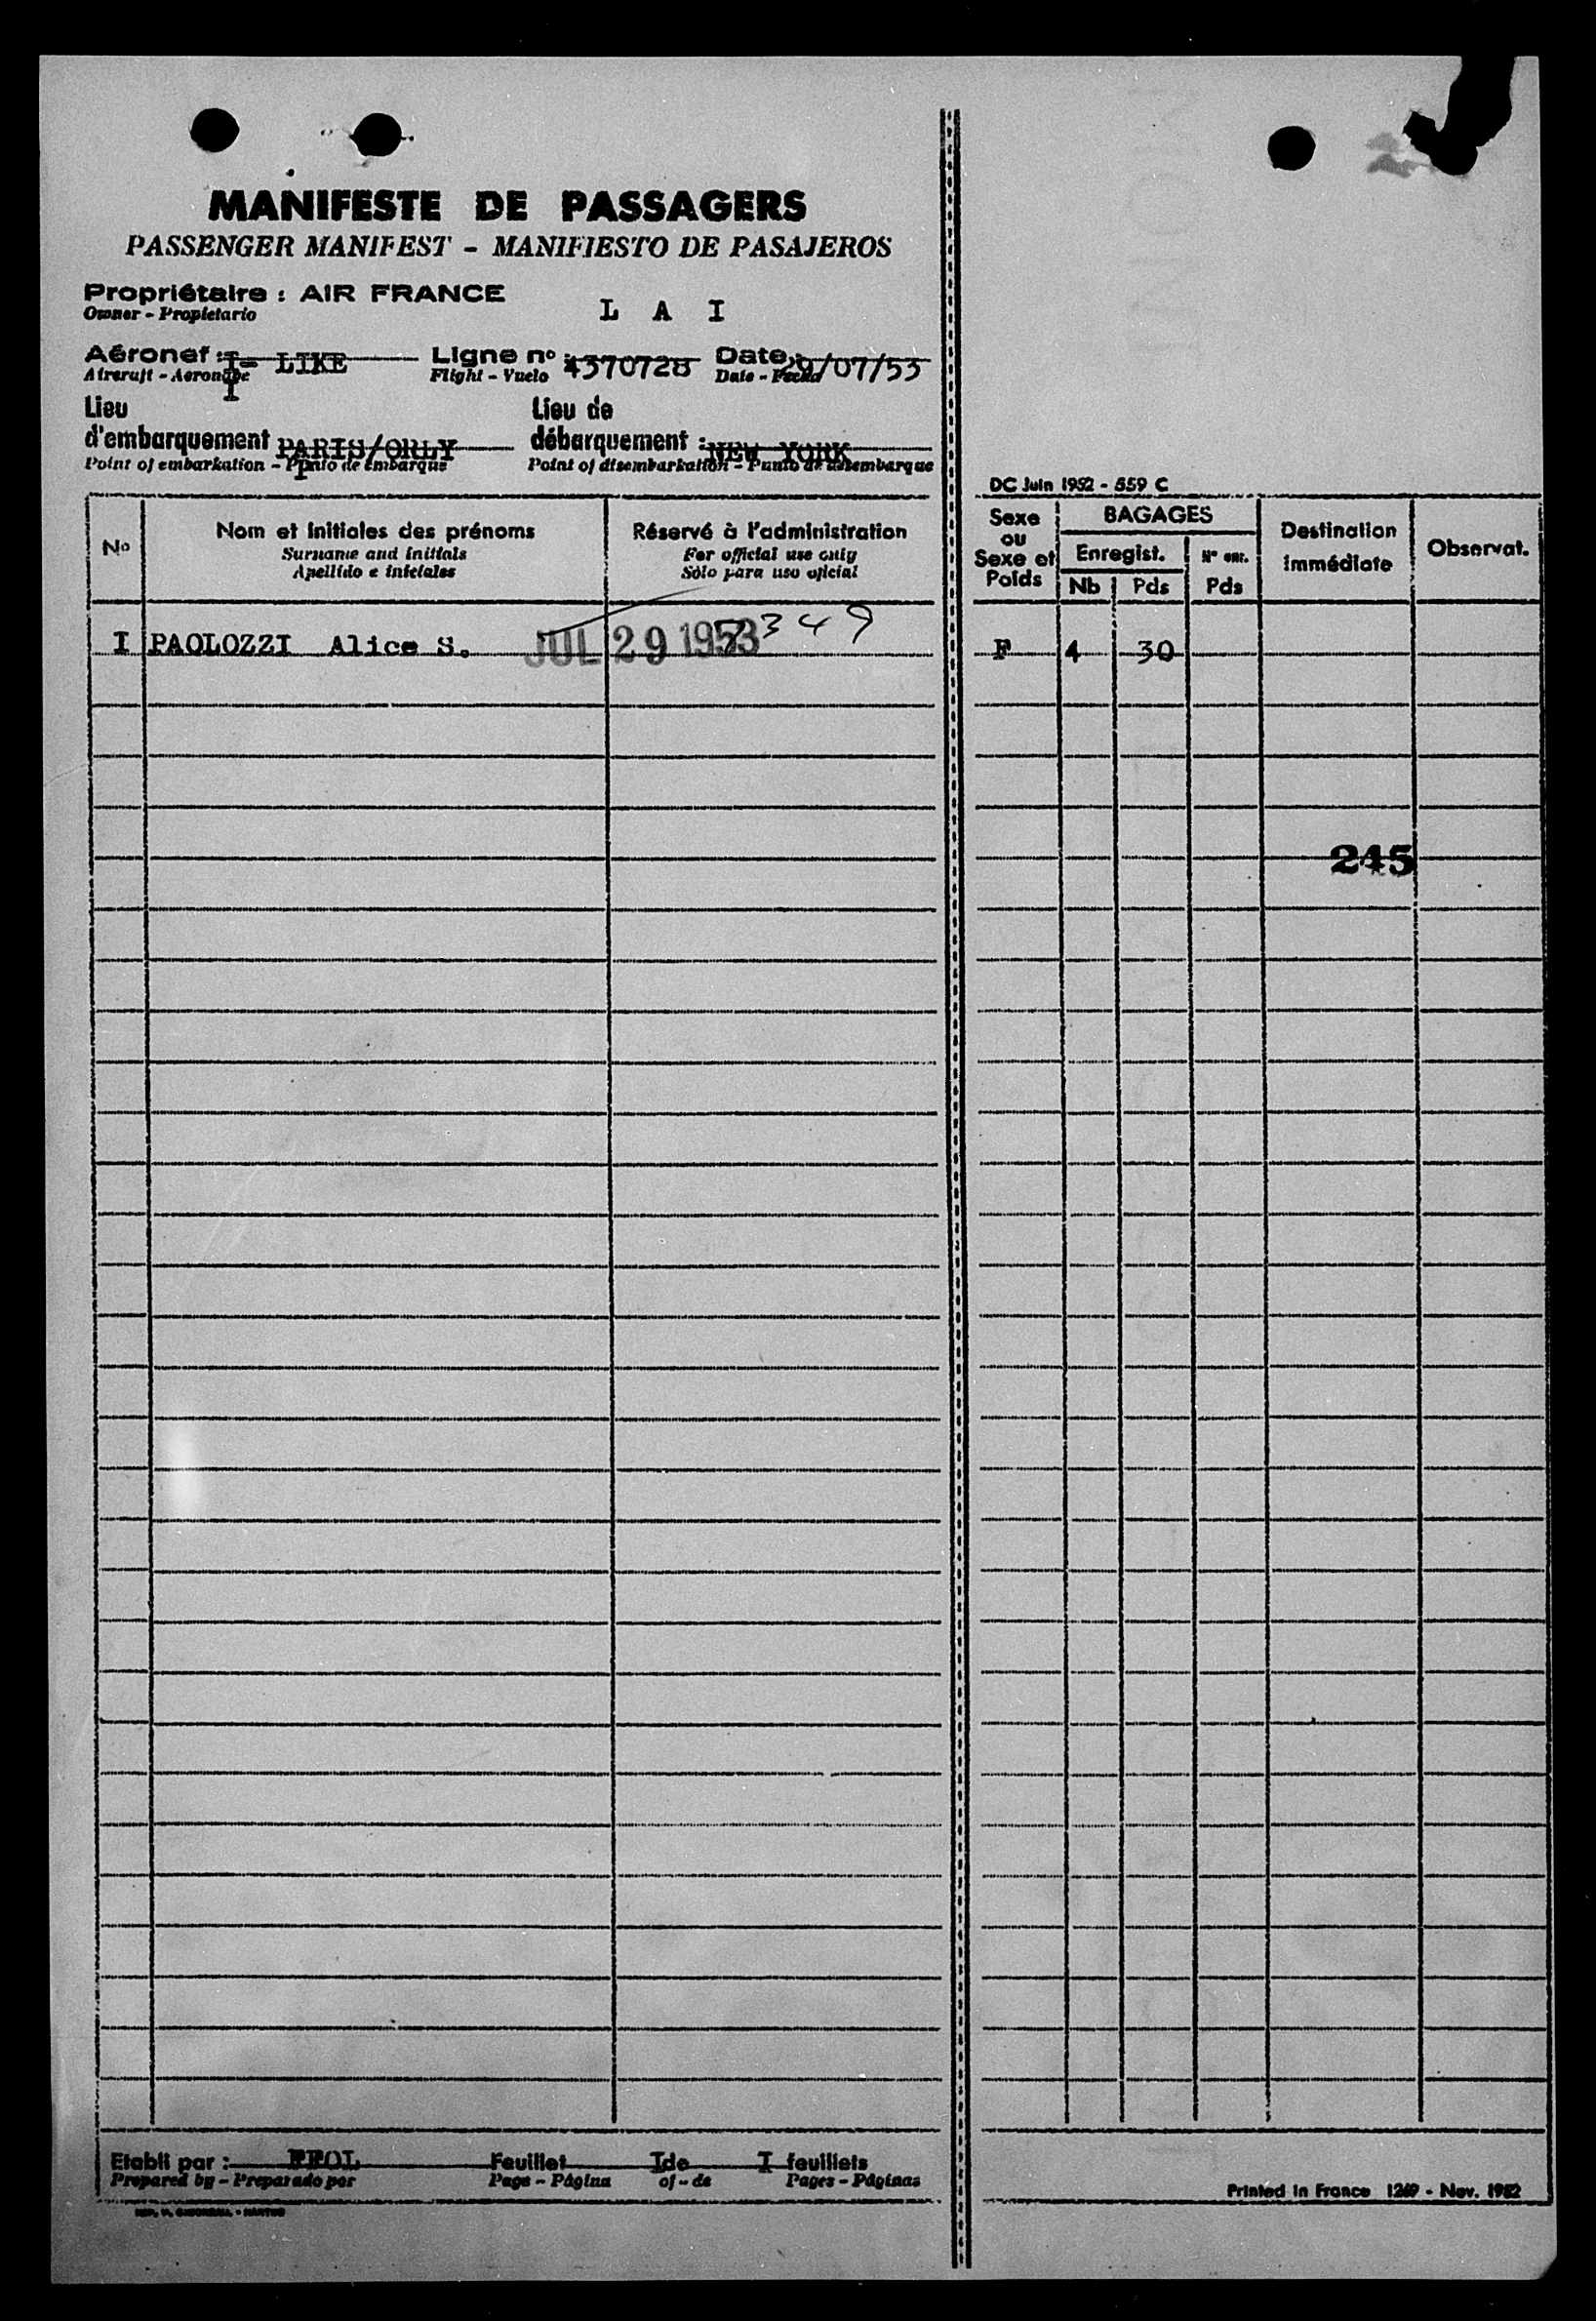 MANIFESTE DE PASSAGERS
PASSENGER MANIFEST - MANIFIESTO DE PASAJEROS
Propriétaire : AIR FRANCE
Owner - Propietario
L A I
Aéronef : I- LIKE Ligne no : 4370728 Date : 29/07/53
Aircraft - Aeronave Flight - Vuelo Date - Fecha
I
Lieu d'embarquement PARIS/ORLY
Point of embarkation - Punto de embarque
Lieu de débarquement : NEW YORK
Point of disembarkation - Punto de desembarque
DC Juin 1952 - 559 C
No
Nom et initiales des prénoms
Surname and initials
Apellido e iniciales
Réservé à l'administration
For official use only
Sólo para uso oficial
Sexe ou Sexe et Poids
BAGAGES
Enregist.
Nb Pds
No enr.
Pds
Destination immédiate
Observat.
I PAOLOZZI Alice S. JUL 29 1953 7349 F 4 30
245
Etabli par : Feuillet I de I feuillets
Prepared by - Preparado por Page - Página of - de Pages - Páginas
Printed in France 1269 - Nov. 1952